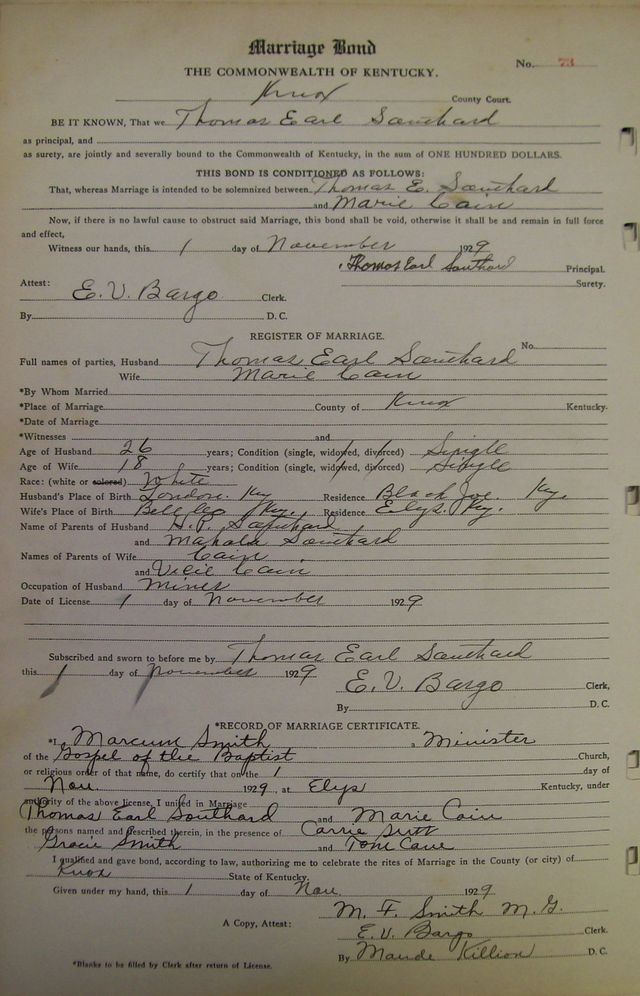 Marriage Bond
No. 73
THE COMMONWEALTH OF KENTUCKY.
Knox County Court.
BE IT KNOWN, That we Thomas Earl Southard
as principal, and
as surety, are jointly and severally bound to the Commonwealth of Kentucky, in the sum of ONE HUNDRED DOLLARS.
THIS BOND IS CONDITIONED AS FOLLOWS:
That, whereas Marriage is intended to be solemnized between Thomas E. Southard
and Marie Cain
Now, if there is no lawful cause to obstruct said Marriage, this bond shall be void, otherwise it shall be and remain in full force
and effect,
Witness our hands, this 1 day of November 1929
Thomas Earl Southard Principal.
Surety.
Attest:
E. V. Bargo Clerk.
By D. C.
REGISTER OF MARRIAGE.
No.
Full names of parties, Husband Thomas Earl Southard
Wife Marie Cain
*By Whom Married
*Place of Marriage County of Knox Kentucky.
*Date of Marriage
*Witnesses and
Age of Husband 26 years; Condition (single, widowed, divorced) Single
Age of Wife 18 years; Condition (single, widowed, divorced) Single
Race: (white or colored) White
Husband's Place of Birth London. Ky Residence Black Joe. Ky.
Wife's Place of Birth Bell Co Ky. Residence Elys. Ky.
Name of Parents of Husband H. P. Southard
and Mahala Southard
Names of Parents of Wife Cain
and Cain
Occupation of Husband Miner
Date of License 1 day of November 1929
Subscribed and sworn to before me by Thomas Earl Southard
this 1 day of November 1929
E. V. Bargo Clerk,
By D. C.
*RECORD OF MARRIAGE CERTIFICATE.
*I, Marcum Smith, a Minister
of the Gospel of the Baptist Church,
or religious order of that name, do certify that on the 1 day of
Nov. 1929, at Elys Kentucky, under
authority of the above license, I united in Marriage
Thomas Earl Southard and Marie Cain
the persons named and described therein, in the presence of Carrie
Gracie Smith and Tom
I qualified and gave bond, according to law, authorizing me to celebrate the rites of Marriage in the County (or city) of
Knox State of Kentucky.
Given under my hand, this 1 day of Nov. 1929
M. F. Smith M. G.
A Copy, Attest: E. V. Bargo Clerk.
By Maude Killion D. C.
*Blanks to be filled by Clerk after return of License.